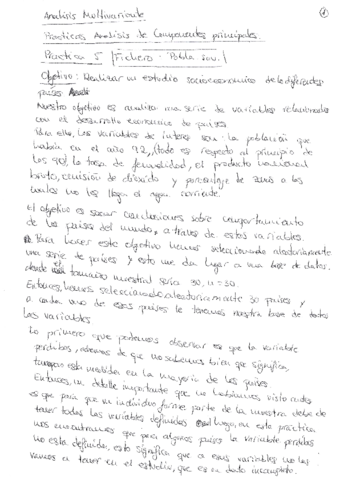 Analisis Multivariante
Practicas Analisis de Componentes principales.
Practica 5 (Fichero: Pobla.sav.)
Objetivo: Realizar un estudio socioeconomico de diferentes
paises
Nuestro objetivo es analizar una serie de variables relacionadas
con el desarrollo economico de paises.
Para ello, las variables de interes son: la población que
habría en el año 92, (todo es respecto al principio de
los 90), la tasa de fecundidad, el producto nacional
bruto, emisión de dioxido y porcentaje de a los
cuales no les llega el agua corriente.
El objetivo es sacar conclusiones sobre comportamiento
de los paises del mundo, a traves de estas variables.
Para hacer este objetivo hemos seleccionado aleatoriamente
una serie de paises y esto me da lugar a una base de datos.
donde tamaño muestral seria 30, n=30.
Entonces, hemos seleccionado aleatoriamente 30 paises y
a cada uno de esos paises le tenemos nuestra base de datos
las variables
Lo primero que podemos observar es que la variable
perdidas, ademas de que no sabemos bien que significa,
tampoco esta medida en la mayoria de los paises.
Entonces, un detalle importante que no habiamos visto antes
es que para que un individuo forme parte de la muestra debe de
tener todas las variables definidas luego, en esta práctica
nos encontramos que para algunos paises la variable perdidas
no esta definida, esto significa que a esas variables no las
vamos a tener en el estudio, que es un dato incompleto.